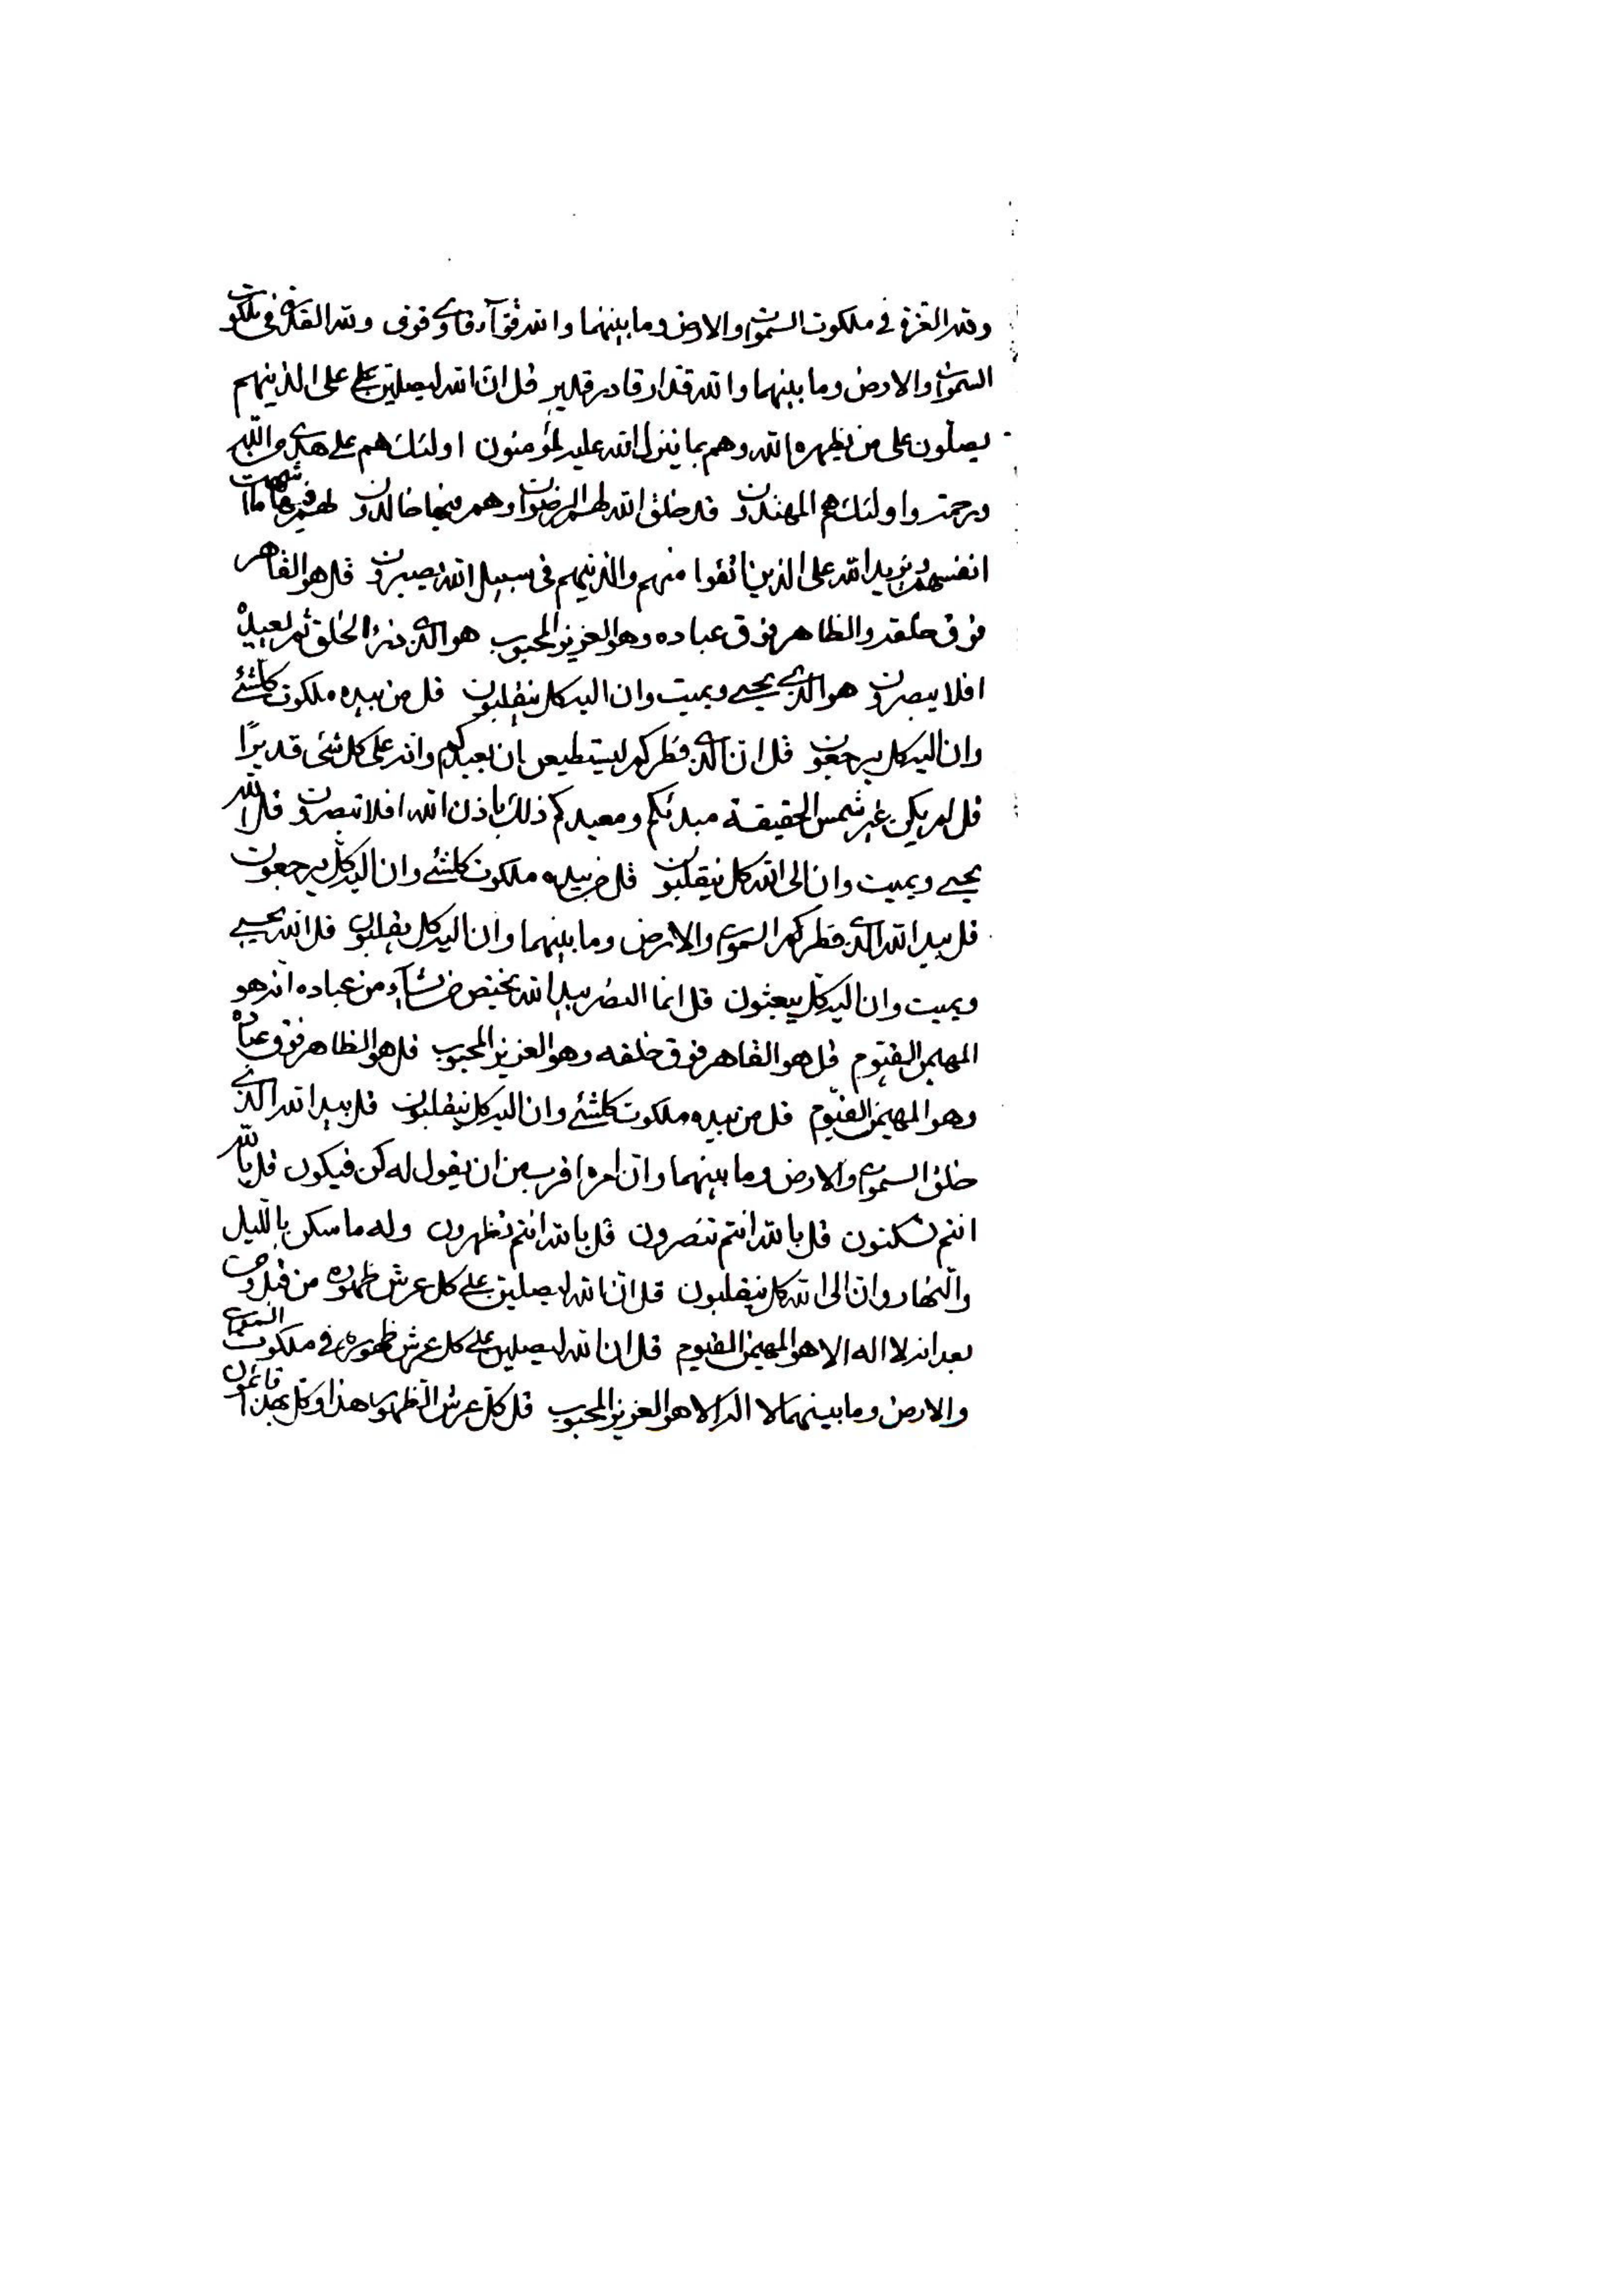 ولله العزة في ملكوت السموات والارض وما بينهما والله قوآء قاوي قوى ولله القدرة في ملكوت
السموات والارض وما بينهما والله قدار قادر قدير قل ان الله ليصلين على الذينهم
يصلون على من يظهره الله وهم بما ينزل الله عليه لمؤمنون اولئك هم على هدى من الله
ورحمته واولئك هم المهتدون قد خلق الله لهم الرضوان وهم فيها خالدون لهم فيها ما اشتهت
انفسهم ويزيد الله على الذين اتقوا منهم والذينهم في سبيل الله يصبرون قل هو القاهر
فوق خلقه والظاهر فوق عباده وهو العزيز المحبوب هو الذي ذرء الخلق ثم لعيده
افلا يبصرون هو الذي يحيي ويميت وان اليه كل ينقلبون قل من بيده ملكوت كلشئ
وان اليه كل يرجعون قل ان الذي فطركم ليستطيعن ان يعيدكم وانه على كل شئ قديرًا
قل لم يكن غير شمس الحقيقة مبدئكم ومعيدكم ذلك باذن الله افلا تبصرون قل الله
يحيي ويميت وان الى الله كل ينقلبون قل من بيده ملكوت كلشئ وان اليه كل يرجعون
قل بيد الله الذي فطركم السموات والارض وما بينهما وان اليه كل يقلبون قل الله يحيي
ويميت وان اليه كل يبعثون قل انما النصر بيد الله يختص من يشآء من عباده انه هو
المهيمن القيوم قل هو القاهر فوق خلقه وهو العزيز المحبوب قل هو الظاهر فوق عباده
وهو المهيمن القيوم قل من بيده ملكوت كلشئ وان اليه كل ينقلبون قل بيد الله الذي
خلق السموات والارض وما بينهما وان امره اقرب من ان يقول له كن فيكون قل بالله
انتم تسكنون قل بالله انتم تنصرون قل بالله انتم تظهرون وله ما سكن بالليل
والنهار وان الى الله كل ينقلبون قل ان الله ليصلين على كل عرش ظهوره من قبل ومن
بعد انه لا اله الا هو المهيمن القيوم قل ان الله ليصلين على كل عرش ظهوره في ملكوت السموات
والارض وما بينهما لا اله الا هو العزيز المحبوب قل كل عرش الظهور هذا وكل بهذا قائمون